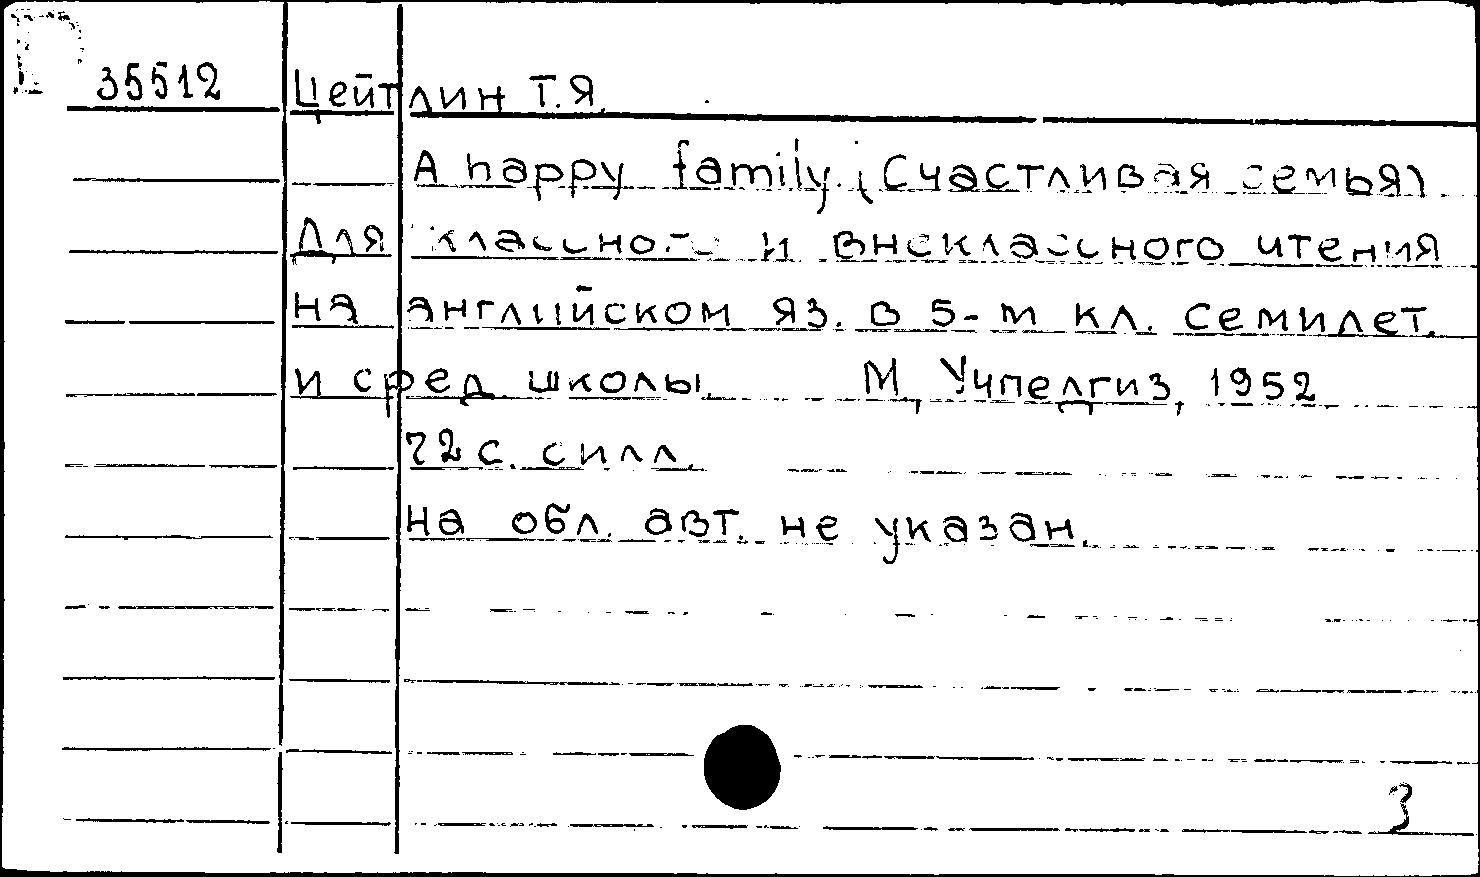 35512 Цейтлин Т.Я.
A happy family. (Счастливая семья)
Для классного и внеклассного чтения
на английском яз. в 5-м кл. семилет.
и сред школы. М, Учпедгиз, 1952
72 с. силл.
На обл. авт. не указан.
3